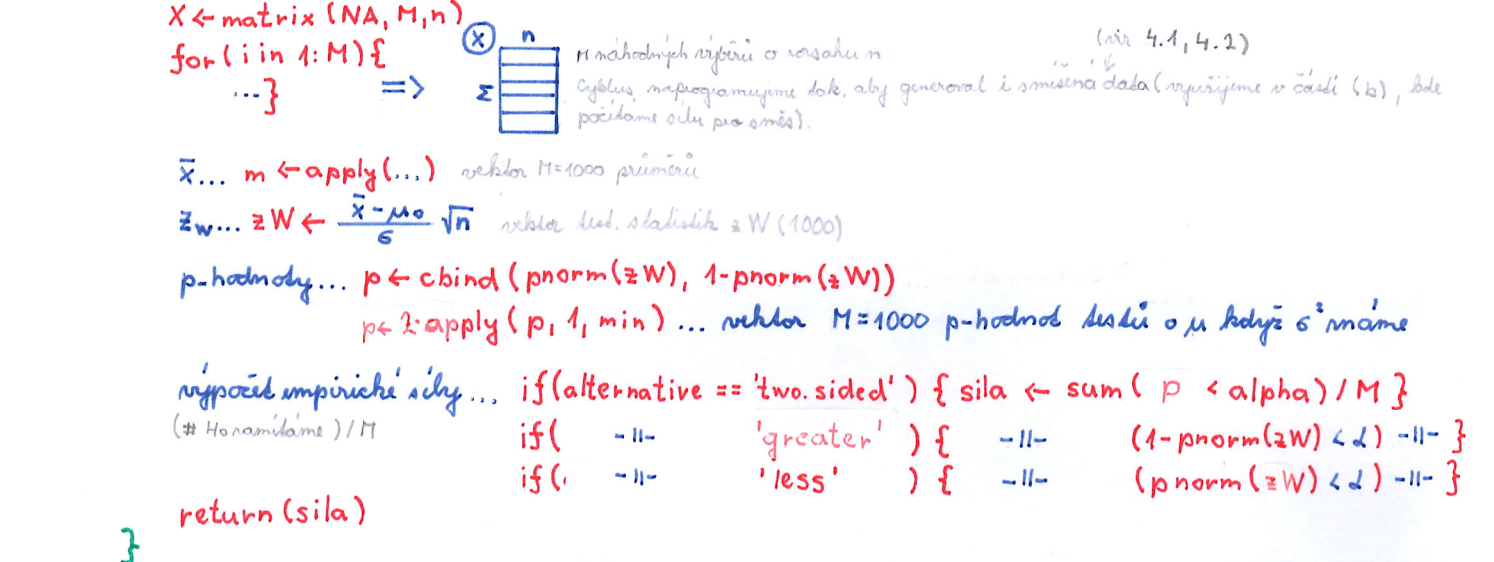 X ← matrix (NA, M, n)
for (i in 1:M) {
...}
=>
X n
M
M náhodných výběrů o rozsahu n
(viz 4.1, 4.2)
Cyklus naprogramujeme tak, aby generoval i smíšená data (využijeme v části (b), kde
počítáme sílu pro směs).
x̄... m ← apply(...) vektor M=1000 průměrů
z_W... zW ← (x̄ - μ0)/σ √n vektor test. statistik zW (1000)
p-hodnoty... p ← cbind (pnorm(zW), 1-pnorm(zW))
p← 2·apply (p, 1, min) ... vektor M=1000 p-hodnot testů o μ když σ² známe
výpočet empirické síly... if(alternative == 'two.sided') { sila ← sum( p < alpha) / M }
(# H0 zamítáme) / M if( -||- 'greater' ) { -||- (1-pnorm(zW) < α) -||- }
if( -||- 'less' ) { -||- (pnorm(zW) < α) -||- }
return (sila)
}